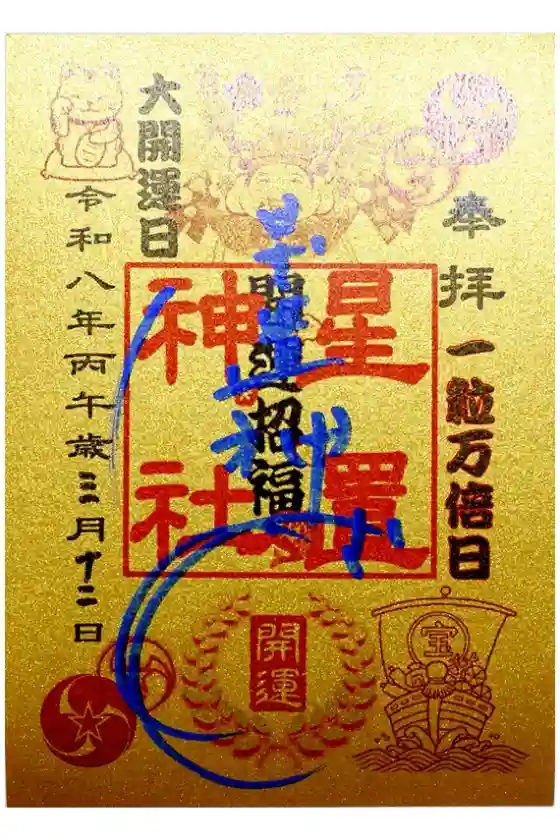 奉拝
一粒万倍日
星置
神社
開運招福
大開運日
令和八年丙午歳三月十二日
開運
宝